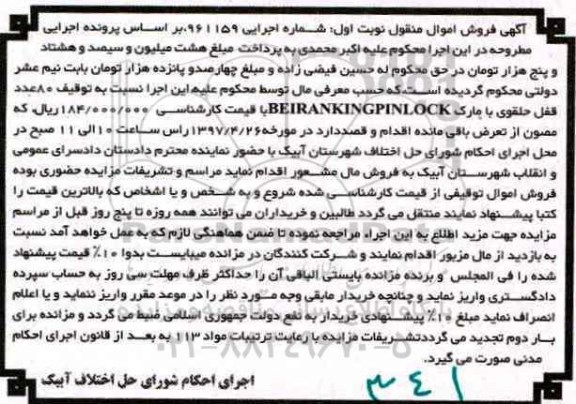 آگهی فروش اموال منقول نوبت اول: شماره اجرایی ۹۶۱۱۵۹.بر اساس پرونده اجرایی
مطروحه در این اجرا محکوم علیه اکبر محمدی به پرداخت مبلغ هشت میلیون و سیصد و هشتاد
و پنج هزار تومان در حق محکوم له حسین فیضی زاده و مبلغ چهارصدو پانزده هزار تومان بابت نیم عشر
دولتی محکوم گردیده است.که حسب معرفی مال توسط محکوم علیه.این اجرا نسبت به توقیف ۸۰عدد
قفل حلقوی با مارک BEIRANKINGPINLOCKبا قیمت کارشناسی ۱۸۴/۰۰۰/۰۰۰ریال. که
مصون از تعرض باقی مانده اقدام و قصددارد در مورخه۱۳۹۷/۴/۲۶راس ساعت ۱۰الی ۱۱ صبح در
محل اجرای احکام شورای حل اختلاف شهرستان آبیک با حضور نماینده محترم دادستان دادسرای عمومی
و انقلاب شهرستان آبیک به فروش مال مشعور اقدام نماید مراسم و تشریفات مزایده حضوری بوده
فروش اموال توقیفی از قیمت کارشناسی شده شروع و به شخص و یا اشخاص که بالاترین قیمت را
کتبا پیشنهاد نمایند منتقل می گردد طالبین و خریداران می توانند همه روزه تا پنج روز قبل از مراسم
مزایده جهت مزید اطلاع به این اجراء مراجعه نموده تا ضمن هماهنگی لازم که به عمل خواهد آمد نسبت
به بازدید از مال مزبور اقدام نمایند و شرکت کنندگان در مزانده میبایست بدوا ۱۰٪ قیمت پیشنهاد
شده را فی المجلس و برنده مزانده بایستی الباقی آن را حداکثر ظرف مهلت سی روز به حساب سپرده
دادگستری واریز نماید و چنانچه خریدار مابقی وجه مورد نظر را در موعد مقرر واریز ننماید و یا اعلام
انصراف نماید مبلغ ۱۰٪ پیشنهادی خریدار به نفع دولت جمهوری اسلامی ضبط می گردد و مزانده برای
بار دوم تجدید می گرددتشریفات مزایده با رعایت ترتیبات مواد ۱۱۳ به بعد از قانون اجرای احکام
مدنی صورت می گیرد.
۰۲۱-۸۸۳۴۹۶۷۰-۵
اجرای احکام شورای حل اختلاف آبیک
۳۴۱